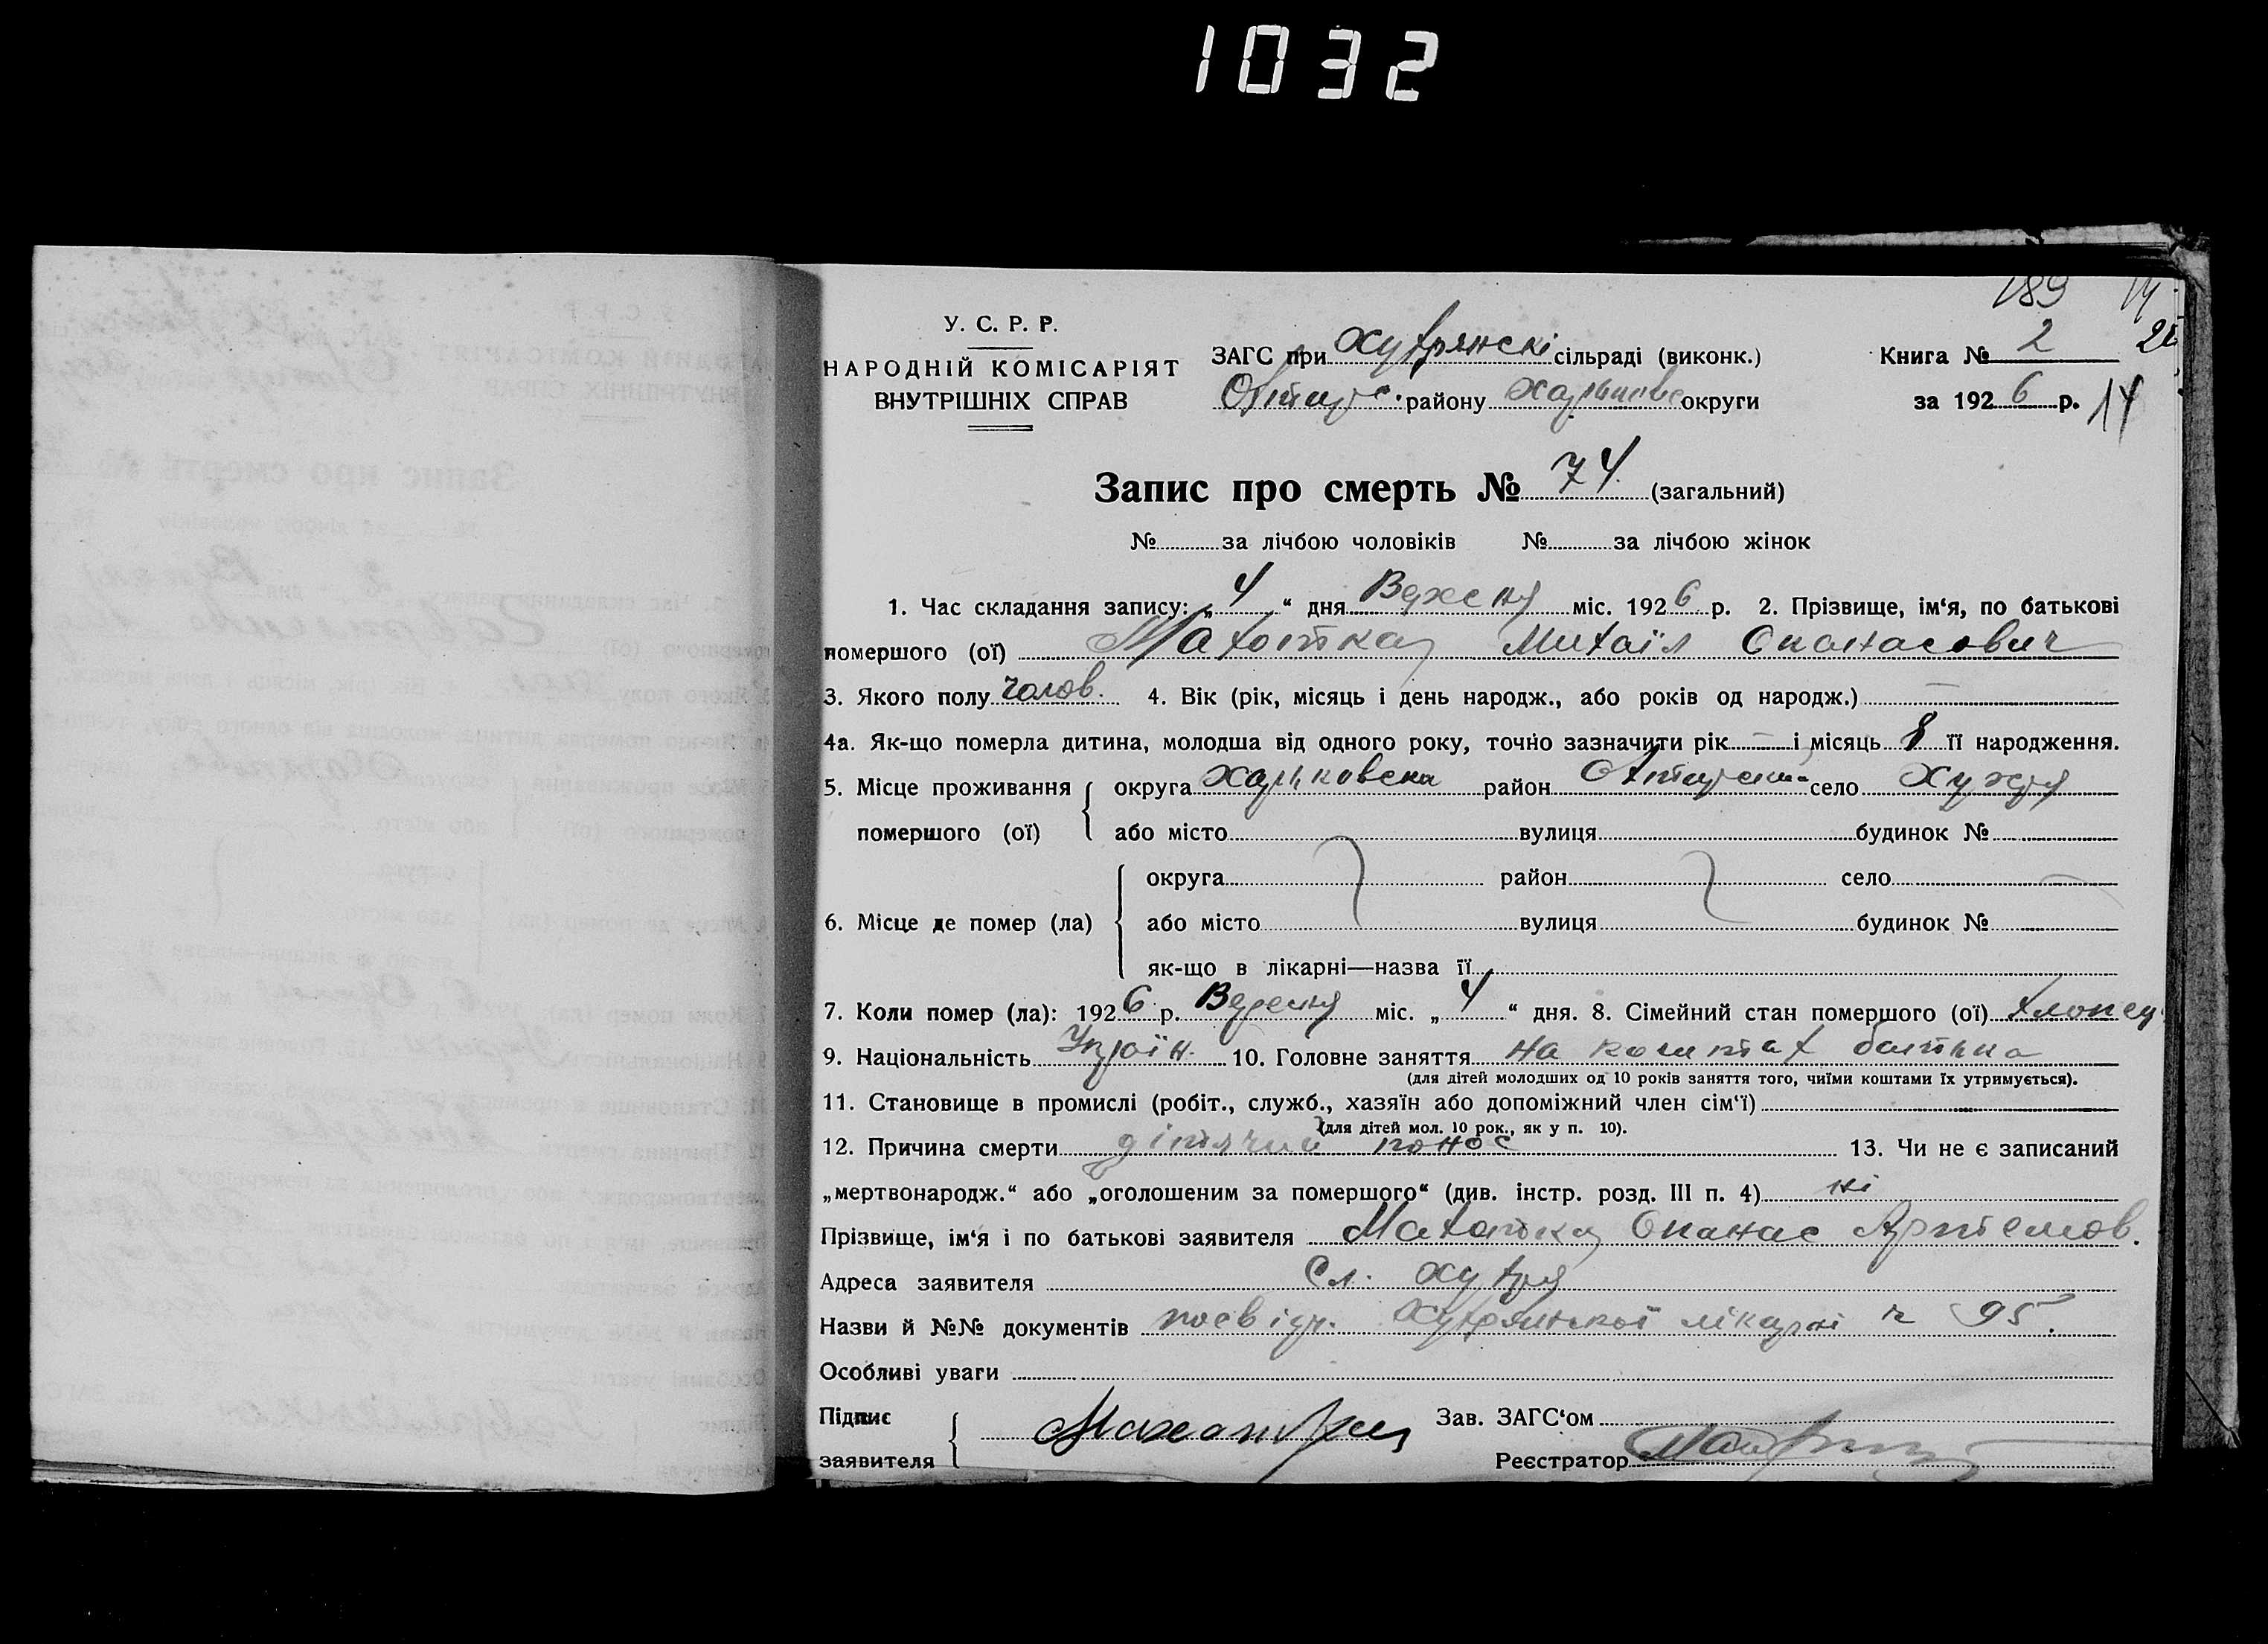 1032
189
У. С. Р. Р.
НАРОДНІЙ КОМІСАРІЯТ
ВНУТРІШНІХ СПРАВ
ЗАГС при Хухрянскі сільраді (виконк.)
Охтирс. району Харьківс округи
Книга № 2
за 1926 р. 14
Запис про смерть № 74. (загальний)
№ за лічбою чоловіків № за лічбою жінок
1. Час складання запису: „4“ дня Вересня міс. 1926 р. 2. Прізвище, ім‘я, по батькові
помершого (ої) Махотка Михаіл Опанасович
3. Якого полу чолов. 4. Вік (рік, місяць і день народж., або років од народж.) —
4а. Як-що померла дитина, молодша від одного року, точно зазначити рік — і місяць 8 її народження.
5. Місце проживання помершого (ої) округа Харьковска район Охтирськ. село Хухря
або місто вулиця будинок №
6. Місце де помер (ла) округа район село
або місто вулиця будинок №
як-що в лікарні—назва її
7. Коли помер (ла): 1926 р. Вересня міс. „4“ дня. 8. Сімейний стан помершого (ої) хлопец
9. Національність Украін. 10. Головне заняття на коштах батька
(для дітей молодших од 10 років заняття того, чиїми коштами їх утримується).
11. Становище в промислі (робіт., служб., хазяїн або допоміжний член сім‘ї)
(для дітей мол. 10 рок., як у п. 10).
12. Причина смерти дітячий понос 13. Чи не є записаний
„мертвонародж.“ або „оголошеним за помершого“ (див. інстр. розд. III п. 4) ні
Прізвище, ім‘я і по батькові заявителя Махотка Опанас Артемов.
Адреса заявителя Сл. Хухря
Назви й №№ документів посвідч. Хухрянської лікарні № 95.
Особливі уваги
Підпис заявителя Махотка
Зав. ЗАГС‘ом
Реєстратор